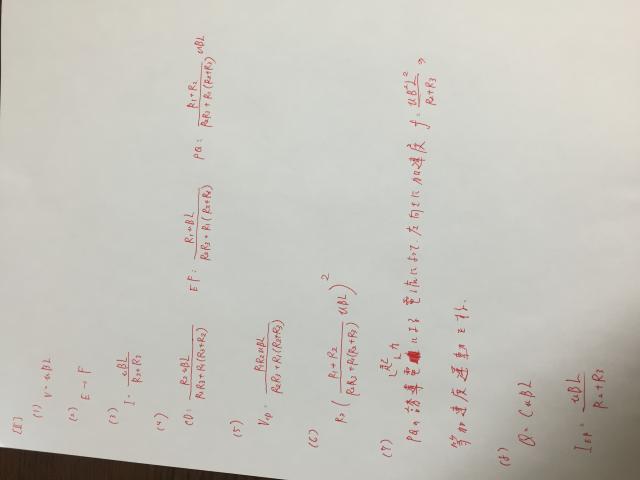 [II]
(1) V = uBL
(2) E → F
(3) I = uBL / (R2+R3)
(4) CD: R2uBL / (R2R3+R1(R2+R3)) EF: R1uBL / (R2R3+R1(R2+R3)) PQ: (R1+R2) / (R2R3+R1(R2+R3)) uBL
(5) VCD = R1R2uBL / (R2R3+R1(R2+R3))
(6) R3 ( (R1+R2) / (R2R3+R1(R2+R3)) uBL )²
(7) PQの誘導起電力による電流によって、左向きに加速度 f =
等加速度運動をする。
(8) Q = CuBL
IEF = uBL / (R2+R3)